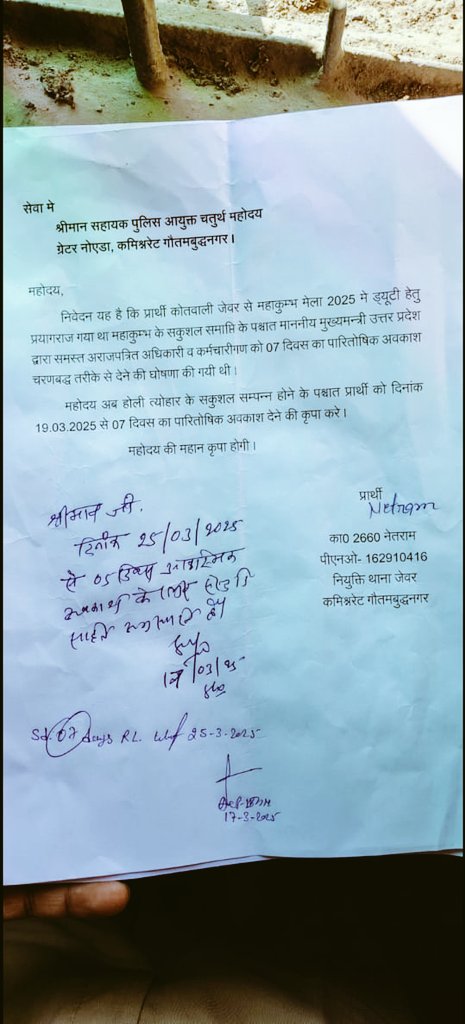 सेवा मे
श्रीमान सहायक पुलिस आयुक्त चतुर्थ महोदय
ग्रेटर नोएडा, कमिश्नरेट गौतमबुद्धनगर।
महोदय,
निवेदन यह है कि प्रार्थी कोतवाली जेवर से महाकुम्भ मेला 2025 मे ड्यूटी हेतु
प्रयागराज गया था महाकुम्भ के सकुशल समाप्ति के पश्चात माननीय मुख्यमन्त्री उत्तर प्रदेश
द्वारा समस्त अराजपत्रित अधिकारी व कर्मचारीगण को 07 दिवस का पारितोषिक अवकाश
चरणबद्ध तरीके से देने की घोषणा की गयी थी।
महोदय अब होली त्योहार के सकुशल सम्पन्न होने के पश्चात प्रार्थी को दिनांक
19.03.2025 से 07 दिवस का पारितोषिक अवकाश देने की कृपा करे।
महोदय की महान कृपा होगी।
प्रार्थी
Netram
का0 2660 नेतराम
पीएनओ- 162910416
नियुक्ति थाना जेवर
कमिश्नरेट गौतमबुद्धनगर
श्रीमान जी,
दिनांक 25/03/2025
से 05 दिवस आकस्मिक
अवकाश के लिए
सादर
/03/25
07 days RL wef 25-3-2025
17-3-2025